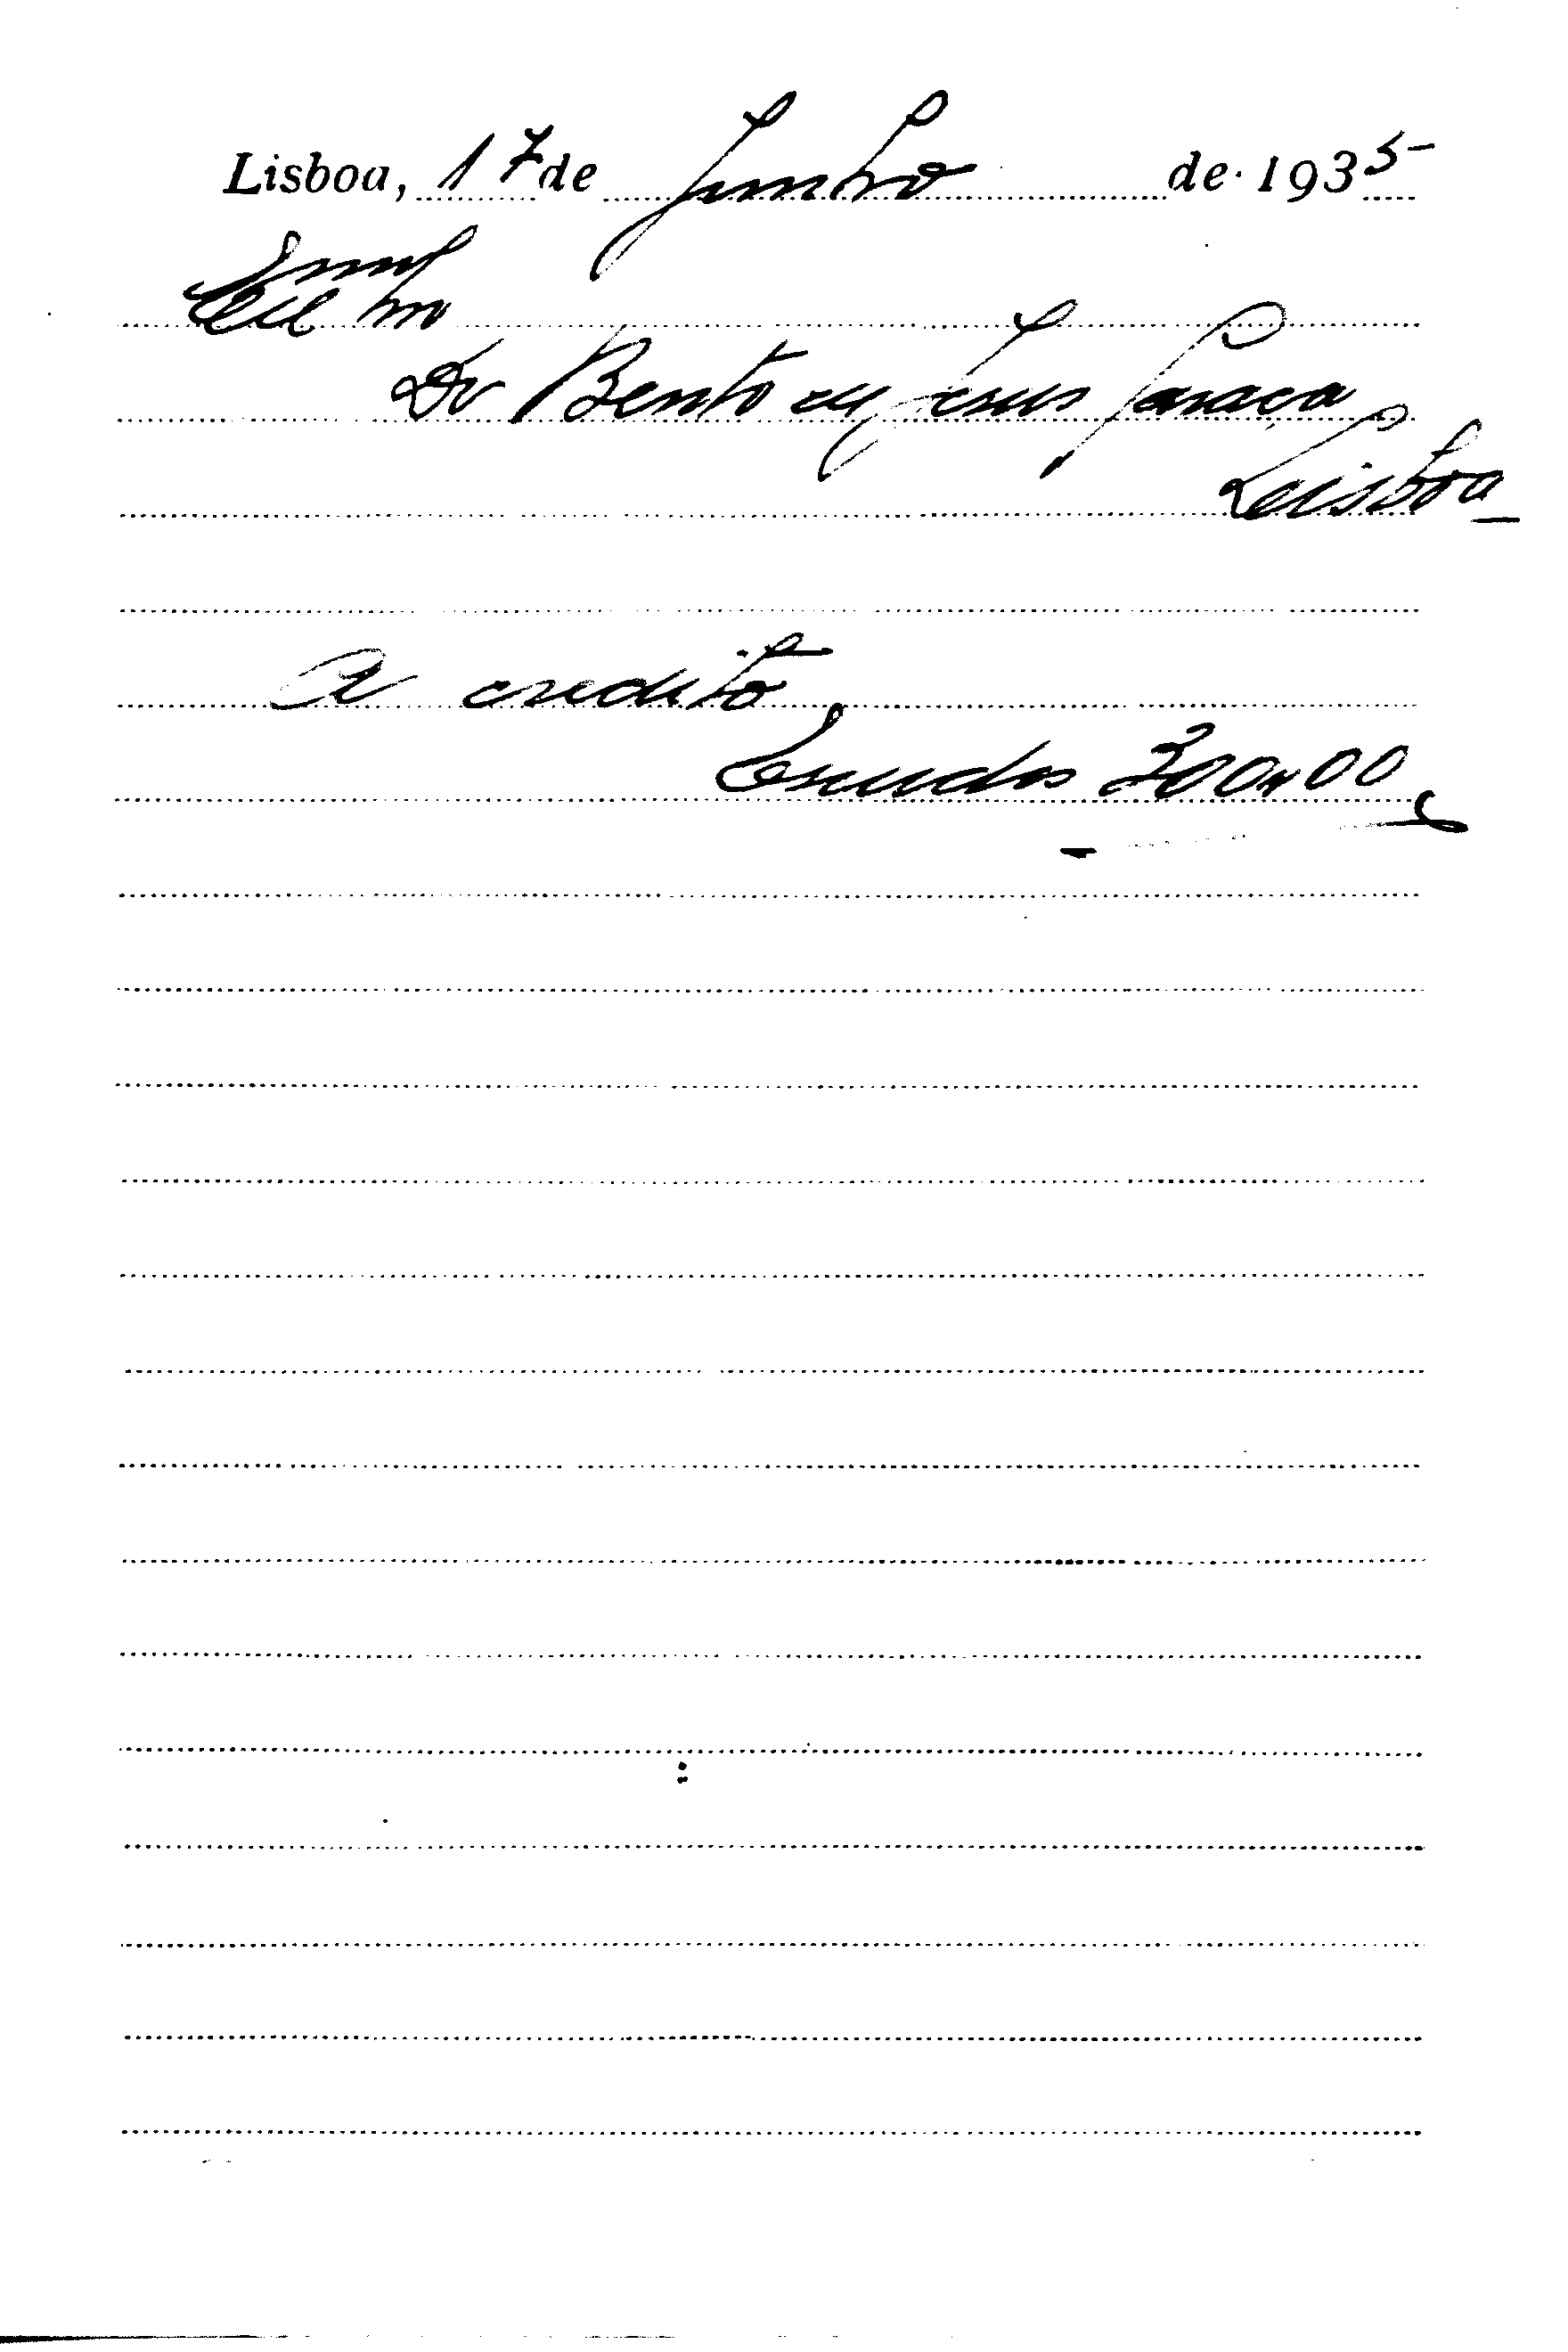 Lisboa, 17 de Junho de 1935
Exmo Snr
Dr Bento de Jesus Caraça
Lisboa
A credito
Escudos 300"00